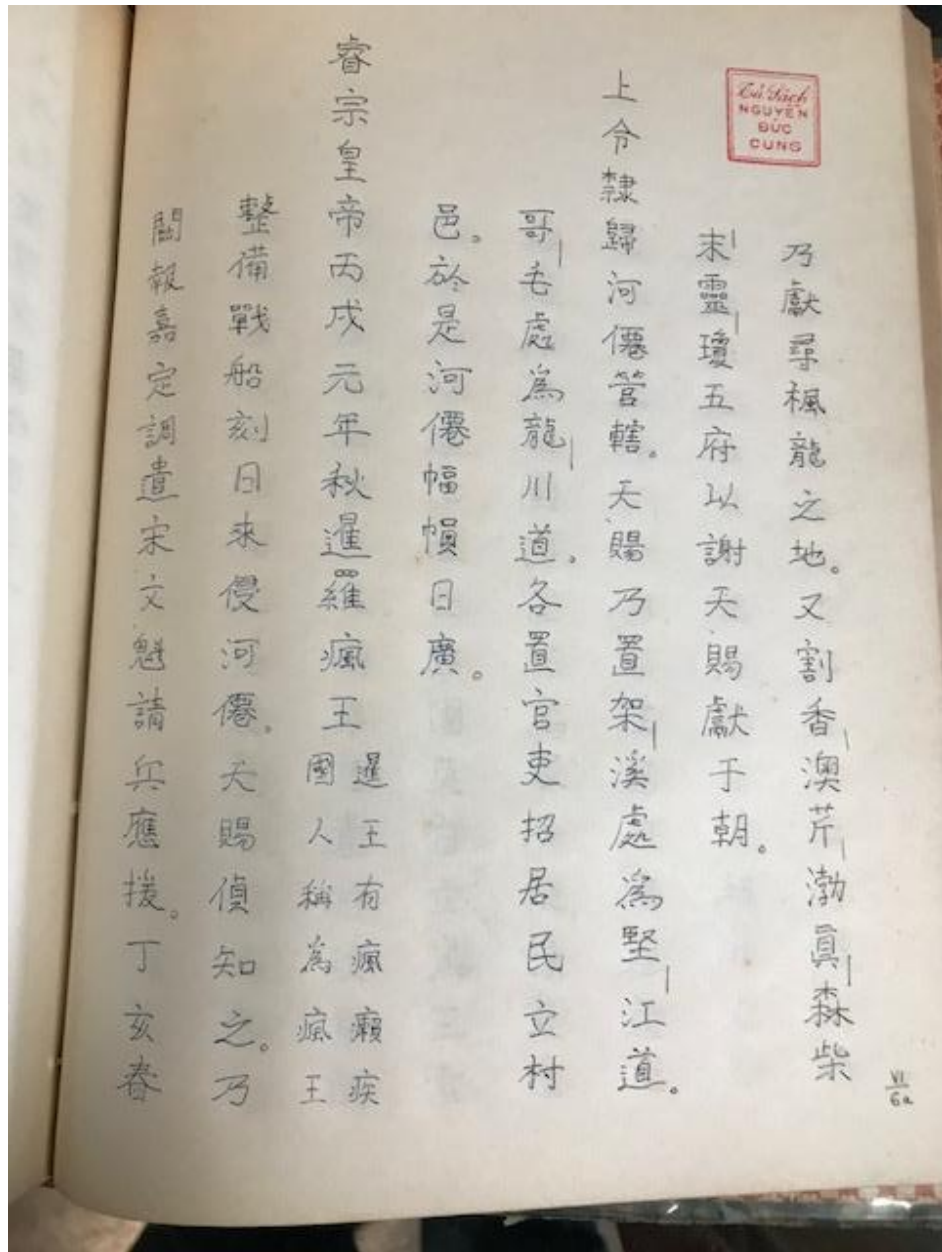 Tủ Sách
NGUYỄN
ĐỨC
CUNG
乃獻尋楓龍之地。又割香澳芹渤真森柴
末靈瓊五府以謝天賜獻于朝。
上令隸歸河僊管轄。天賜乃置架溪處為堅江道。
哥毛處為龍川道。各置官吏招居民立村
邑。於是河僊幅幀日廣。
睿宗皇帝丙戌元年秋暹羅瘋王
暹王有瘋癩疾
國人稱為瘋王
整備戰船刻日來侵河僊。天賜偵知之。乃
開報嘉定調遣宋文魁請兵應援。丁亥春
VI
6a